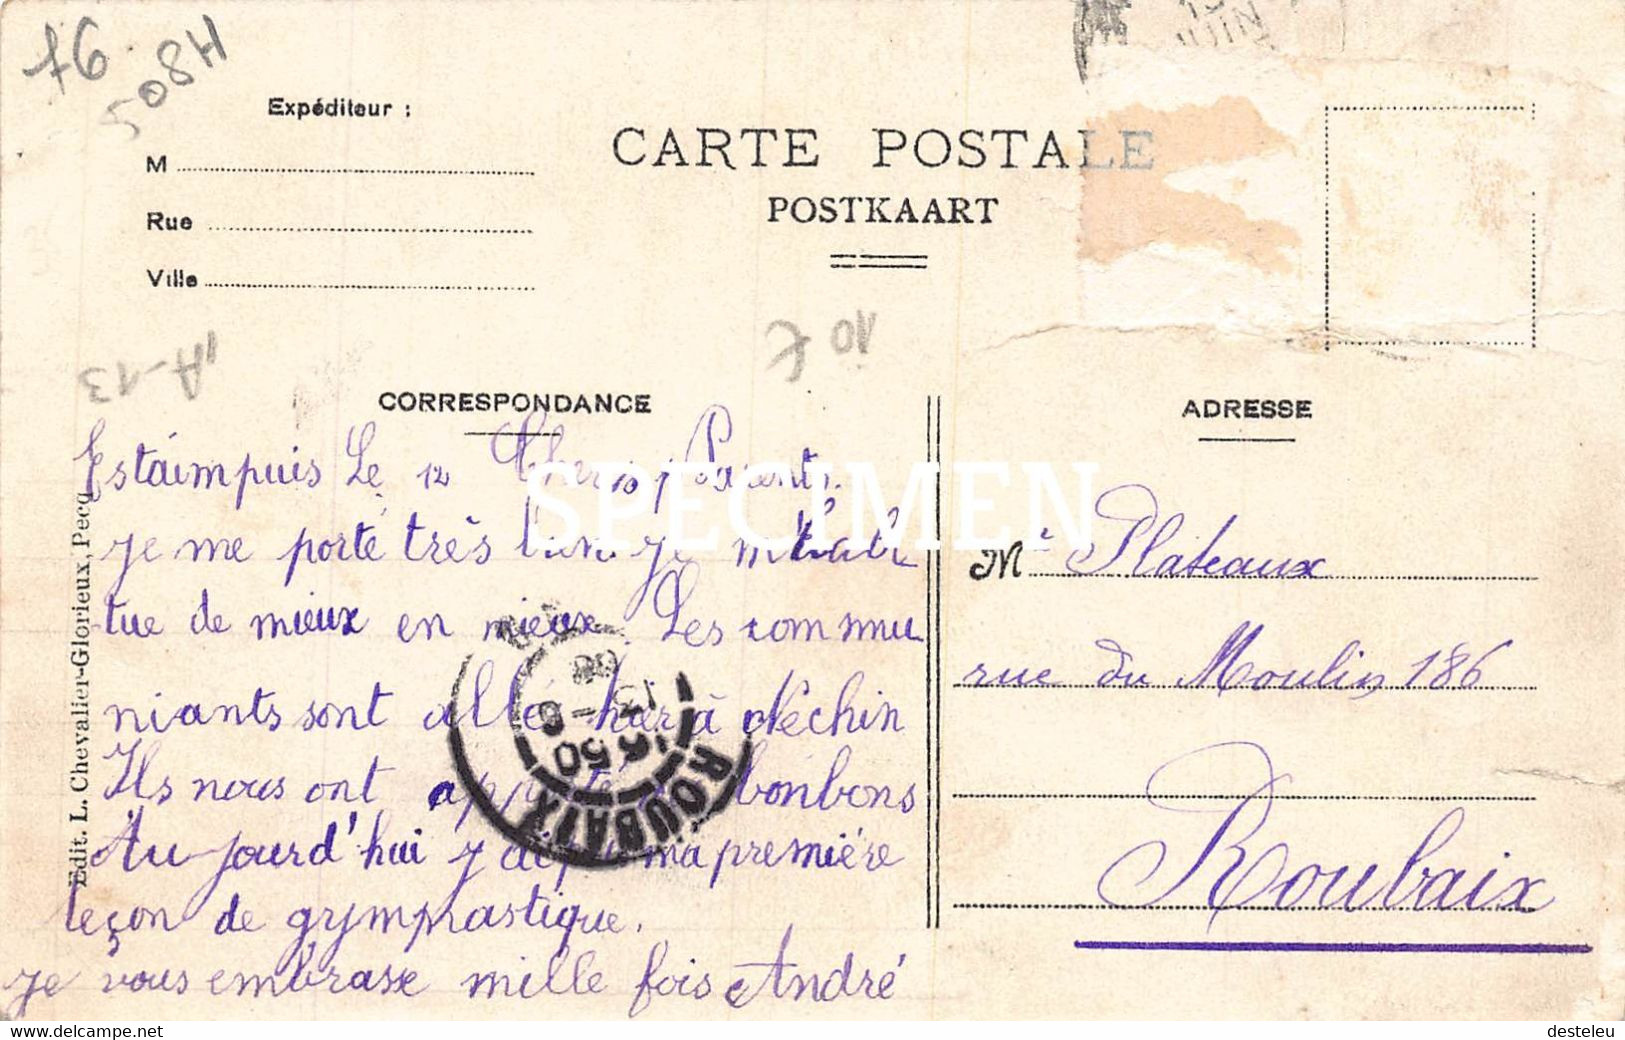 76
508H
Expéditeur :
M
Rue
Ville
CARTE POSTALE
POSTKAART
10 €
A-13
CORRESPONDANCE
Estaimpuis Le 12 Chers Parents.
je me porte très bien je m'habi
tue de mieux en mieux. Les commu
niants sont allé hier à Néchin
Ils nous ont apporté bonbons
Au jourd'hui j'ai ma première
leçon de gymnastique.
je vous embrasse mille fois André
Edit. L. Chevalier-Glorieux, Pecq
ADRESSE
Mr Plateaux
rue du Moulin 186
Roubaix
ROUBAIX
SPECIMEN
www.delcampe.net
desteleu